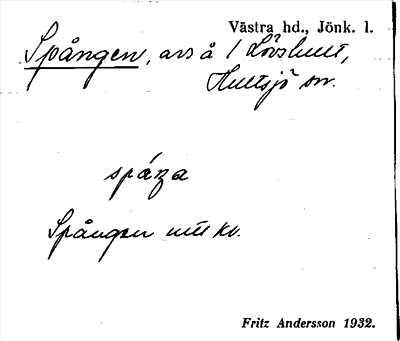 Västra hd., Jönk. l.
Spången, avs å 1 Lövshult,
Hultsjö sn.
spáƞa
Spången utt kv.
Fritz Andersson 1932.